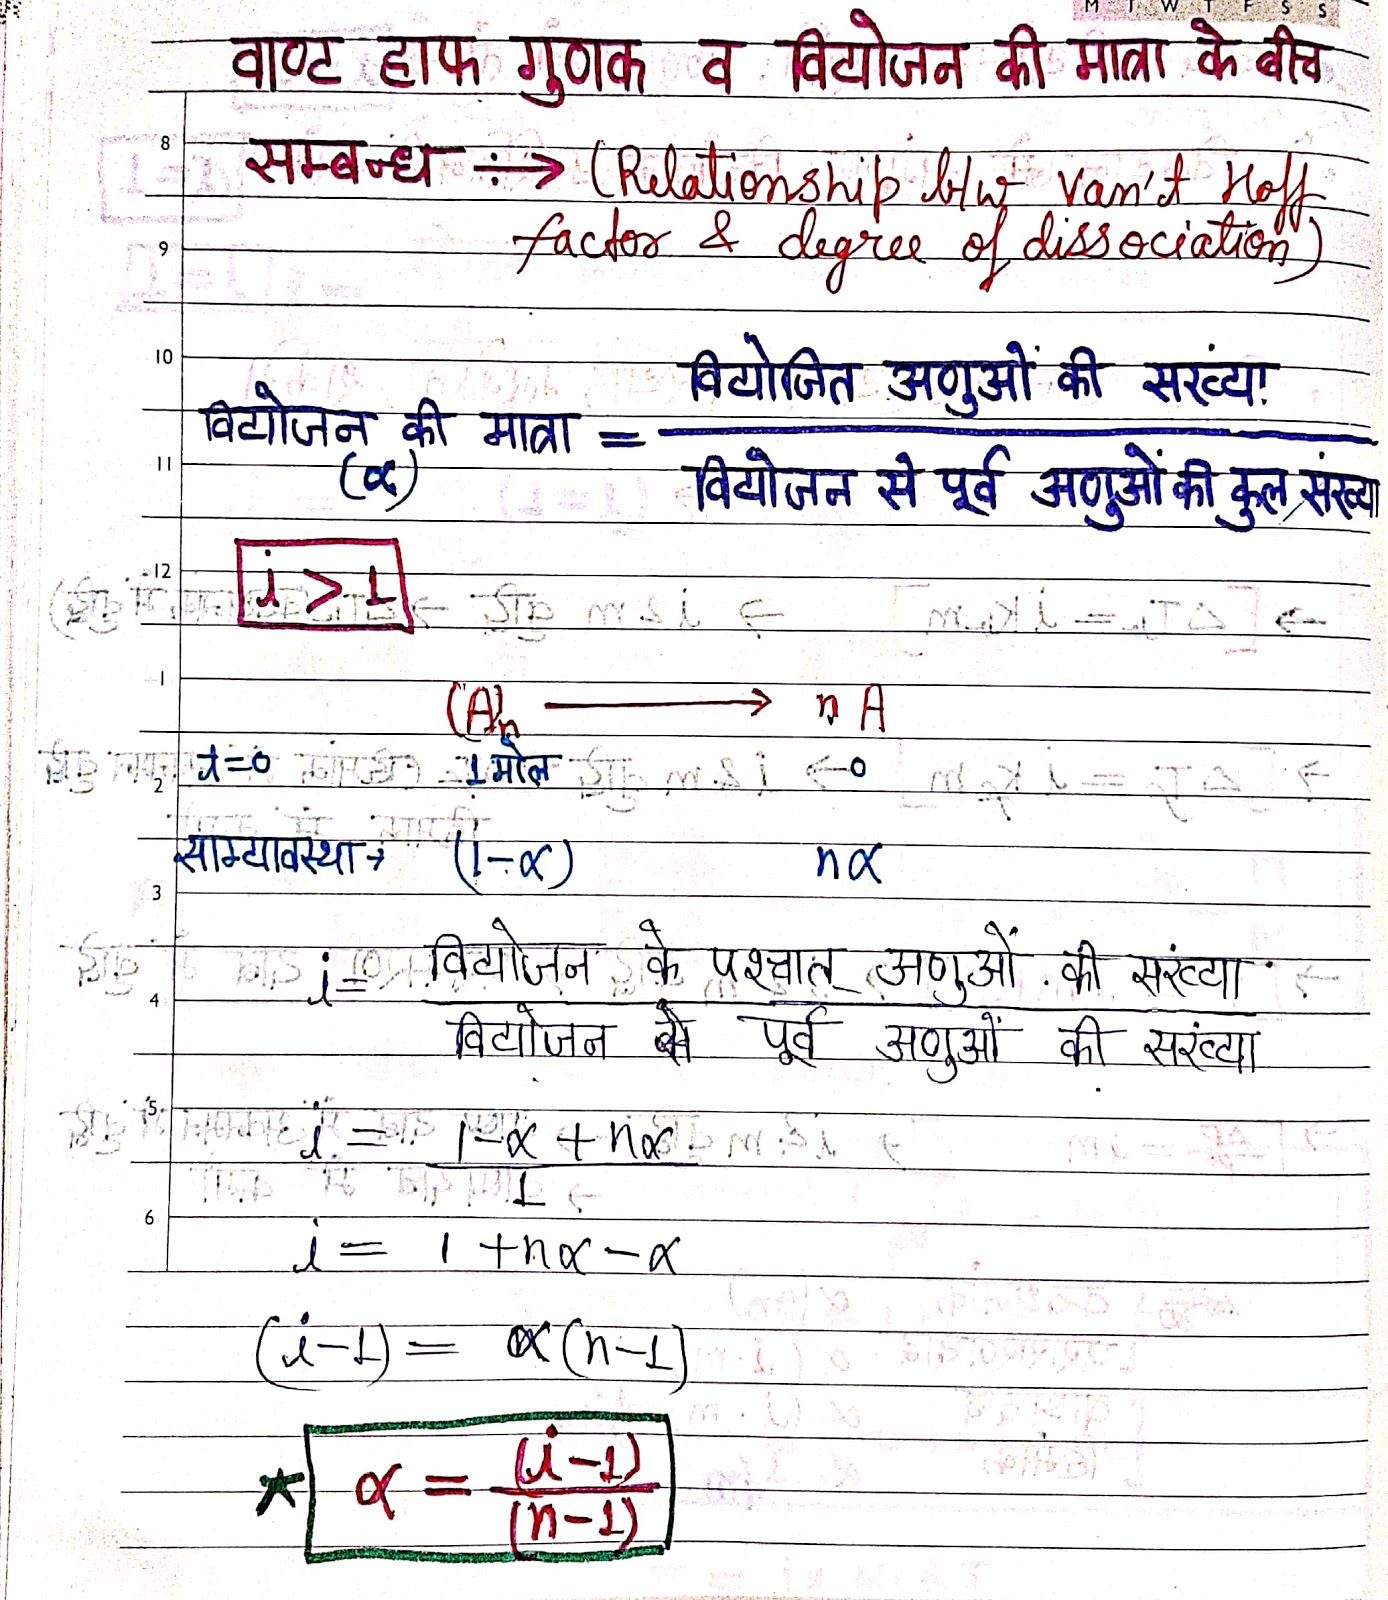 M T W T F S S
वाण्ट हाफ गुणक व वियोजन की मात्रा के बीच
8 सम्बन्ध ÷→ (Relationship b/w van't Hoff
9 factor & degree of dissociation)
10 वियोजित अणुओं की सरंव्या
वियोजन की मात्रा = ―――
11 (α) वियोजन से पूर्व अणुओं की कुल संख्या
12 i > 1
1 (A)n ⟶ n A
2 t=0 1 मोल 0
साम्यावस्था→ (1-α) nα
3
i = वियोजन के पश्चात् अणुओं की संख्या
4 ―――
वियोजन से पूर्व अणुओं की सरंव्या
5 i = 1-α + nα
―――
1
6 i = 1 + nα - α
(i-1) = α (n-1)
★ α = (i-1)
―――
(n-1)